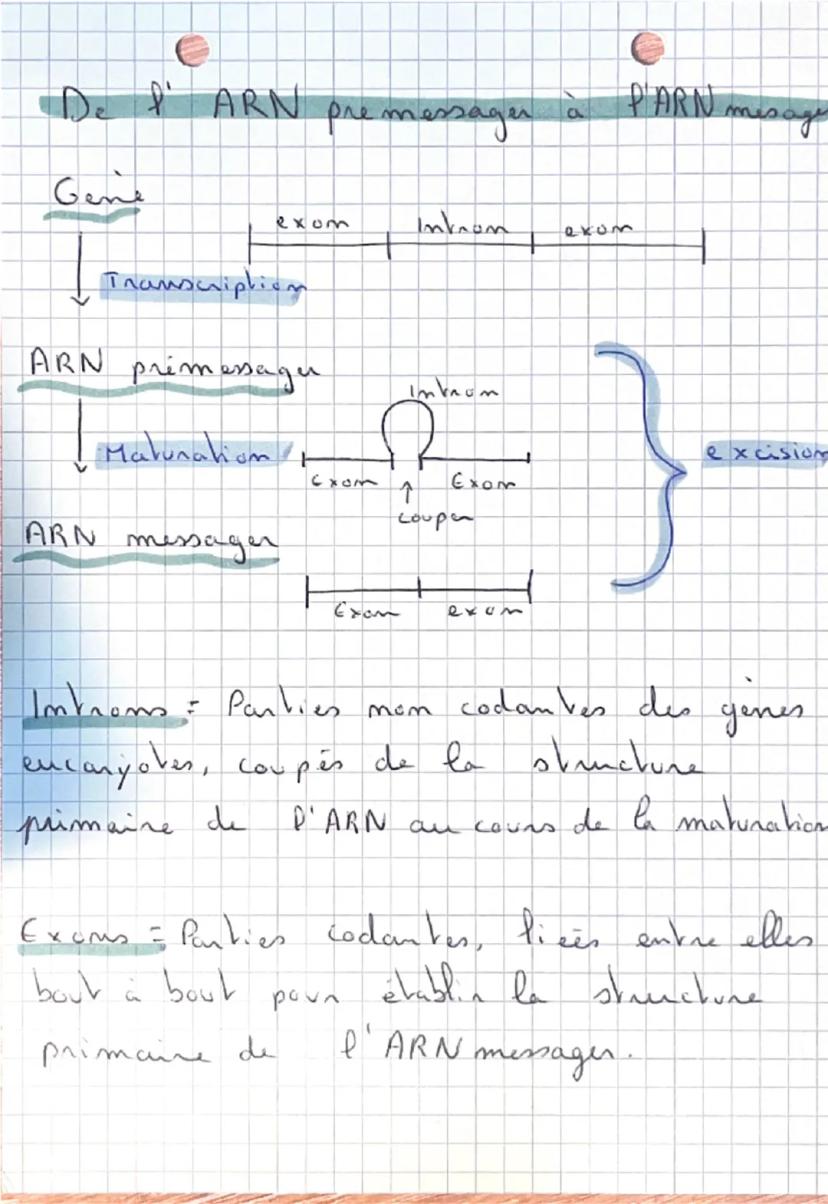 De l' ARN premessager à l'ARN mesage
Gène
exon Intron exon
Transcription
ARN prémessager
Intron
Maturation
excision
Exon Exon
couper
ARN messager
Exon exon
Introns = Parties non codantes des gènes
eucaryotes, coupés de la structure
primaire de l'ARN au cours de la maturation
Exons = Parties codantes, liées entre elles
bout à bout pour établir la structure
primaire de l'ARN messager.